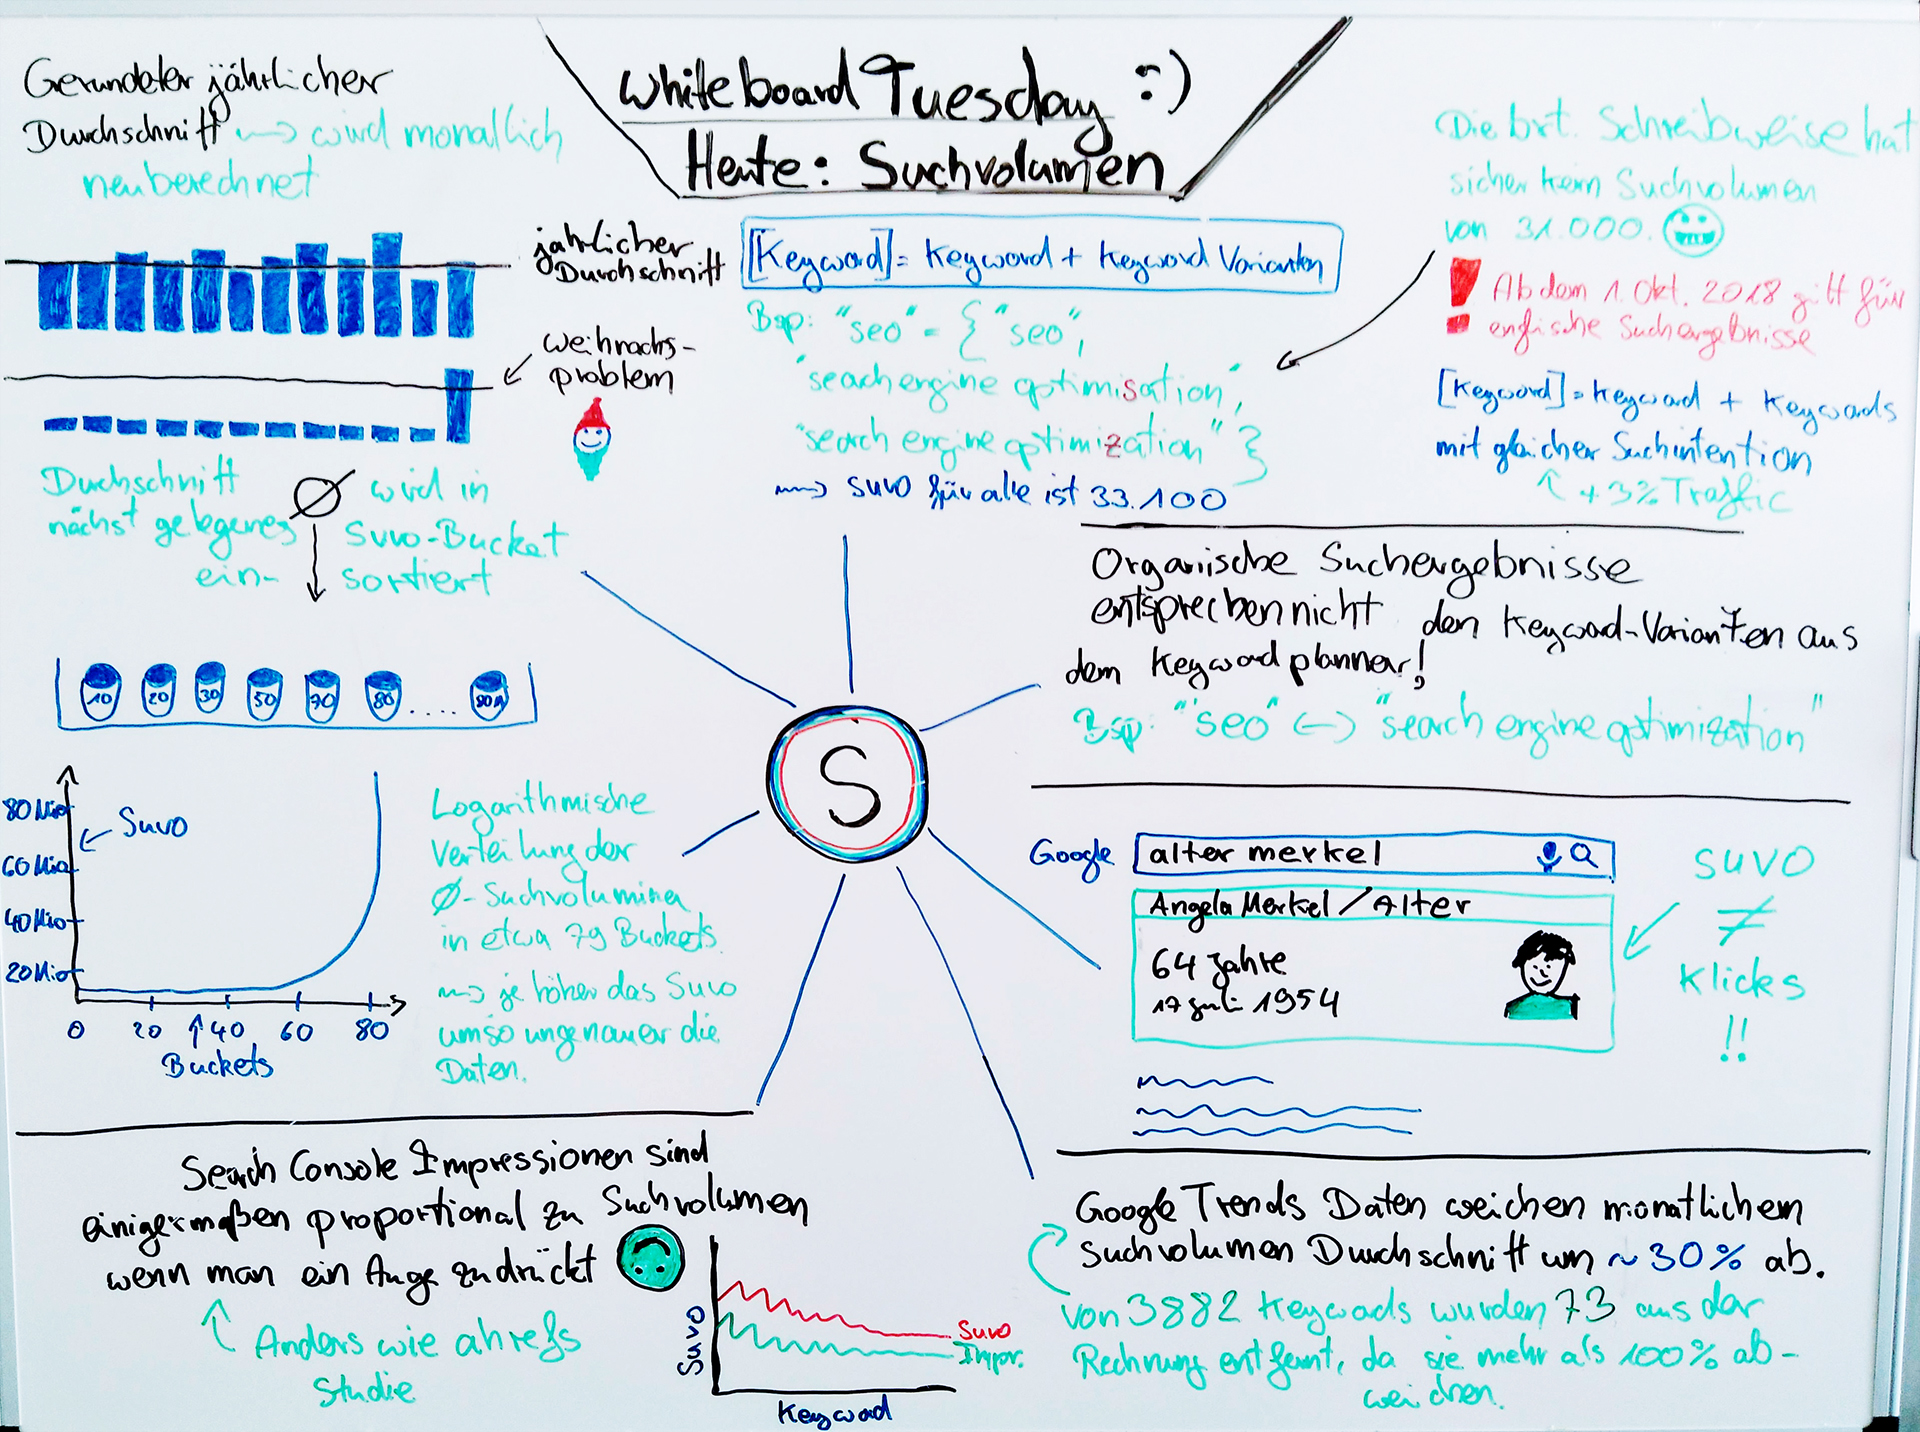 Whiteboard Tuesday :)
Heute: Suchvolumen
Gerundeter jährlicher
Durchschnitt ~> wird monatlich
neuberechnet
jährlicher
Durchschnitt
Weihnachs-
problem
Durchschnitt Ø wird in
nächst gelegenes Suvo-Bucket
ein- sortiert
10 20 30 50 70 80 ....
80 Mio
60 Mio
40 Mio
20 Mio
Suvo
0 20 40 60 80
Buckets
Logarithmische
Verteilung der
Ø-Suchvolumina
in etwa 79 Buckets.
~> je höher das Suvo
umso ungenauer die
Daten.
[Keyword] = Keyword + Keyword Varianten
Bsp: "seo" = { "seo",
"search engine optimisation",
"search engine optimization" }
~> suvo für alle ist 33.100
Die brt. Schreibweise hat
sicher kein Suchvolumen
von 31.000.
! Ab dem 1. Okt. 2018 gilt für
englische Suchergebnisse
[Keyword] = Keyword + Keywords
mit gleicher Suchintention
+3% Traffic
Organische Suchergebnisse
entsprechen nicht den Keyword-Varianten aus
dem Keywordplanner!
Bsp: "seo" <-> "search engine optimization"
S
Google alter merkel
Angela Merkel / Alter
64 Jahre
17 Juli 1954
SUVO
≠
Klicks
!!
Search Console Impressionen sind
einigermaßen proportional zu Suchvolumen
wenn man ein Auge zudrückt
Anders wie ahrefs
Studie
Suvo
Suvo
Impr.
Keyword
Google Trends Daten weichen monatlichem
Suchvolumen Durchschnitt um ~30% ab.
Von 3882 Keywords wurden 73 aus der
Rechnung entfernt, da sie mehr als 100% ab-
weichen.